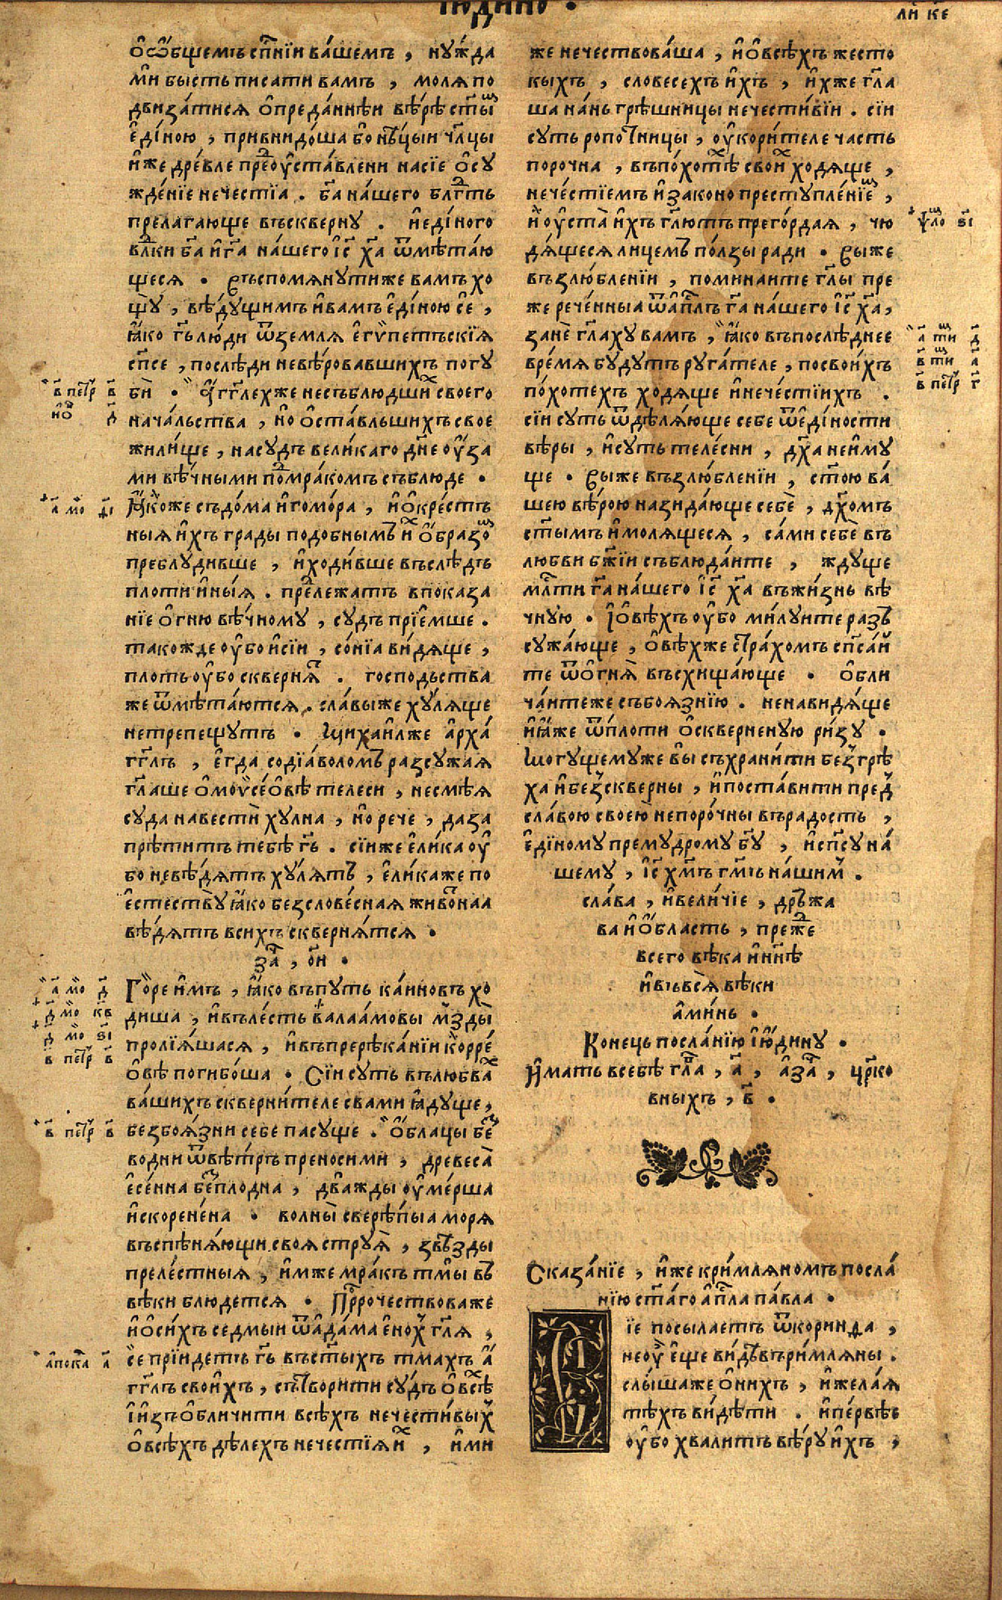 іюдино .
ли к҃е
ѡ҆ о҆́бщемъ сп҃нїи ва́шемъ , ну́жда
мѝ бысть писати вамъ , моля по
двиза́тися ѡ҆ преда́ннѣи вѣ́рѣ ст҃ы
е҆ди́ною , привнидо́ша бо нѣ́цыи чл҃цы
и҆же дре́вле преоу҆ста́влени на сїе ѡ҆су
жде́нїе нечестїа . б҃а на́шего бл҃гть
прелага́юще въ скверну . и҆ еди́ного
влⷣки б҃а и҆ г҃а на́шего і҆с х҃а ѿмѣта́ю
щеся . Въспомянути же вамъ хо
щу̀ , вѣ́дущимъ и҆ вамъ е҆ди́ною се̂ ,
ꙗ҆́ко г҃ь лю́ди ѿ земля е҆гѵ́петъскїя
сп҃се , послѣди невѣ́ровавшихъ погу
бѝ . а҆́г҃глех же несъблю́дших своего̀
нача́льства , но ѡ҆ста́вльшихъ свое
жили́ще , на судъ вели́каго дн҃е оу҆́за
ми вѣ́чными под мра́комъ съблюде .
Ꙗ҆́коже съдо́ма и҆ гомо́ра , и҆ ѡ҆кре́стъ
ныя и҆́хъ грады подобнымъ и҆̀м ѡ҆́бразо
преблуди́вше , и҆ ходи́вше въ слѣдъ
плоти и҆ны́я . предлежатъ в показа
нїе ѻ҆гню вѣ́чному , судъ прїе́мше .
такожде оу҆́бо и҆ сїи , со́нїа ви́дяще ,
плоть оу҆́бо скверня́т . господьства
же ѿмѣта́ются . сла́вы же ху́ляще
не трепе́щутъ . Михаи́л же а҆рха́
гг҃лъ , е҆гда̀ со дїа́воломъ разсужая
гл҃аше ѡ҆ моѵсе́ѡвѣ телеси , не смѣ́я
суда навестѝ ху́лна , но̀ рече , да за
прѣти́тъ тебѣ̀ г҃ь . сїи же е҆ли́ка оу҆́
бо невѣ́дятъ ху́лятъ , е҆ли́ка же по
е҆стествꙋ̀ ꙗ҆́ко безслове́сная живо́тнаа
вѣ́дятъ в сихъ скверня́тся .
за҃ , о҃и .
Го́ре и҆̀мъ , ꙗ҆́ко въ путь ка́иновъ хо
диша , и҆ въ ле́сть вала́амовы мзды̀
пролїя́шася , и҆ въ прерѣка́нїи корре́
ѡ҆вѣ погибо́ша . Сїи суть в любва́х
ва́шихъ скверни́теле с вами ꙗ҆ду́ще ,
безбоя́зни себе пасу́ще . ѻ҆́блацы без
водни ѿ вѣ́тръ преносими , древеса̀
е҆се́нна безплодна , два́жды оу҆ме́рша
и҆скорене́на . волны̀ сверѣ́пыа моря
въспѣня́ющи своя струя̀ , звѣзды
преле́стныя , и҆́мже мра́къ тмы̀ въ
вѣки блюде́тся . Прⷪ҇рочествова же
и҆ ѡ҆ си́хъ седмыи ѿ а҆да́ма е҆но́х гл҃я ,
се прїи́детъ г҃ь въ ст҃ыхъ тма́хъ а҆́
гг҃лъ свои́хъ , сътвори́ти су́дъ ѡ҆ всѣ́х
і҆ и҆зъѡбличи́ти всѣ́хъ нечести́выхъ
ѡ҆ всѣ́хъ дѣ́лехъ нечестїя и҆́х , и҆́ми
же нечествова́ша , и҆ ѡ҆ всѣ́хъ жесто
кыхъ , словесехъ и҆́хъ , и҆́хже гл҃а
ша на́нь грѣшницы нечести́вїи . сїи
су́ть ропо́тницы , оу҆кори́теле часть
порочна , въ по́хотех свои́х ходя́ще ,
нече́стїемъ и҆ законопреступле́нїем ,
и҆ оу҆ста̀ и҆́хъ гл҃ютъ прего́рдая , чю
дя́щеся ли́цемъ по́лзы ра́ди . Вы же
възлю́бленїи , помина́ите гл҃ы пре
же рече́нныа ѿ а҆п҃лъ г҃а на́шего і҆с х҃а ,
занѐ гл҃аху вамъ , ꙗ҆́ко въ послѣ́днее
вре́мя бу́дутъ руга́теле , по свои́хъ
по́хотехъ ходя́ще и҆ нечести́ихъ .
сїи суть ѿдѣля́юще себе ѿ е҆ди́ности
вѣ́ры , и҆ суть теле́сни , дх҃а не и҆му
ще . Вы же възлю́бленїи , ст҃ою ва́
шею вѣ́рою назида́юще себѐ , дх҃омъ
ст҃ымъ и҆̀ моля́щеся , са́ми себе въ
любви бж҃їи съблюда́ите , жду́ще
мл҃ти г҃а на́шего і҆с х҃а въ жи́знь вѣ́
чную . И҆ ѡ҆вѣхъ оу҆́бо ми́луите разъ
сужа́юще , ѡ҆вѣ́х же стра́хомъ сп҃са́и
те ѿ ѻ҆гня̀ въсхища́юще . ѡ҆бли
ча́ите же съ боя́знїю . ненави́дяще
и҆ ꙗ҆́же ѿ пло́ти ѡ҆скверненую ри́зу .
Могу́щему же вы съхрани́ти безгрѣ
ха и҆ безскверны , и҆ поста́вити пред
сла́вою своею непоро́чны въ ра́дость ,
е҆ди́ному прему́дрому б҃у , и҆ сп҃су на́
шему , і҆с х҃мъ г҃мъ на́шим .
сла́ва , и҆ вели́чїе , дръ́жа
ва и҆ ѻ҆́бласть , пре́же
всего вѣ́ка и҆ нн҃ѣ
и҆ въ вся̀ вѣ́ки
а҆ми́нь .
Конець посла́нїю і҆ю́дину .
И҆́мать в себѣ гл҃а , а҃ , а҆ за҃ , цр҃ко
вныхъ , в҃ .
Сказа́нїе , и҆́же кри́мляномъ посла́
нїю ст҃а́го а҆п҃ла па́вла .
їе посыла́етъ ѿ кори́нфа ,
не оу҆̀ е҆ще ви́дѣвъ ри́мляны .
слы́ша же ѡ҆ ни́хъ , и҆ жела́я
тѣ́хъ ви́дѣти . и҆ пе́рвѣе
оу҆́бо хвали́тъ вѣ́ру и҆́хъ ,